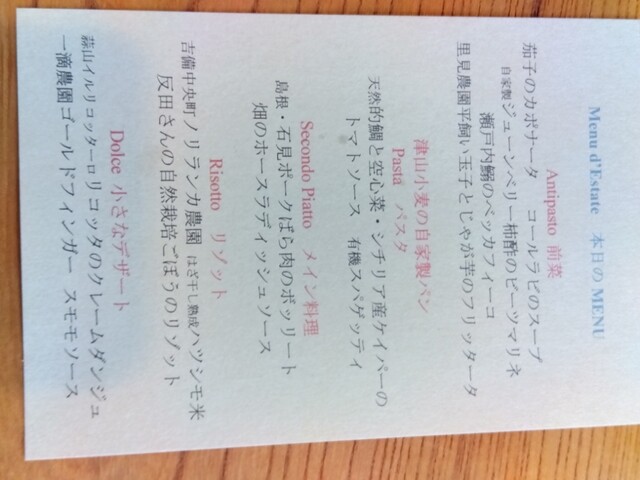 Menu d'Estate 本日の MENU
Antipasto 前菜
茄子のカポサータ コールラビのスープ
自家製ジューンベリー柿酢のビーツマリネ
瀬戸内鰯のベッカフィーコ
里見農園平飼い玉子とじゃが芋のフリッタータ
津山小麦の自家製パン
Pasta パスタ
天然的鯛と空心菜・シチリア産ケイパーの
トマトソース 有機スパゲッティ
Secondo Piatto メイン料理
島根・石見ポークばら肉のボッリート
畑のホースラディッシュソース
Risotto リゾット
吉備中央町ノリランカ農園 はざ干し熟成ハツシモ米
反田さんの自然栽培ごぼうのリゾット
Dolce 小さなデザート
蒜山イルリコッターロリコッタのクレームダンジュ
一滴農園ゴールドフィンガー スモモソース